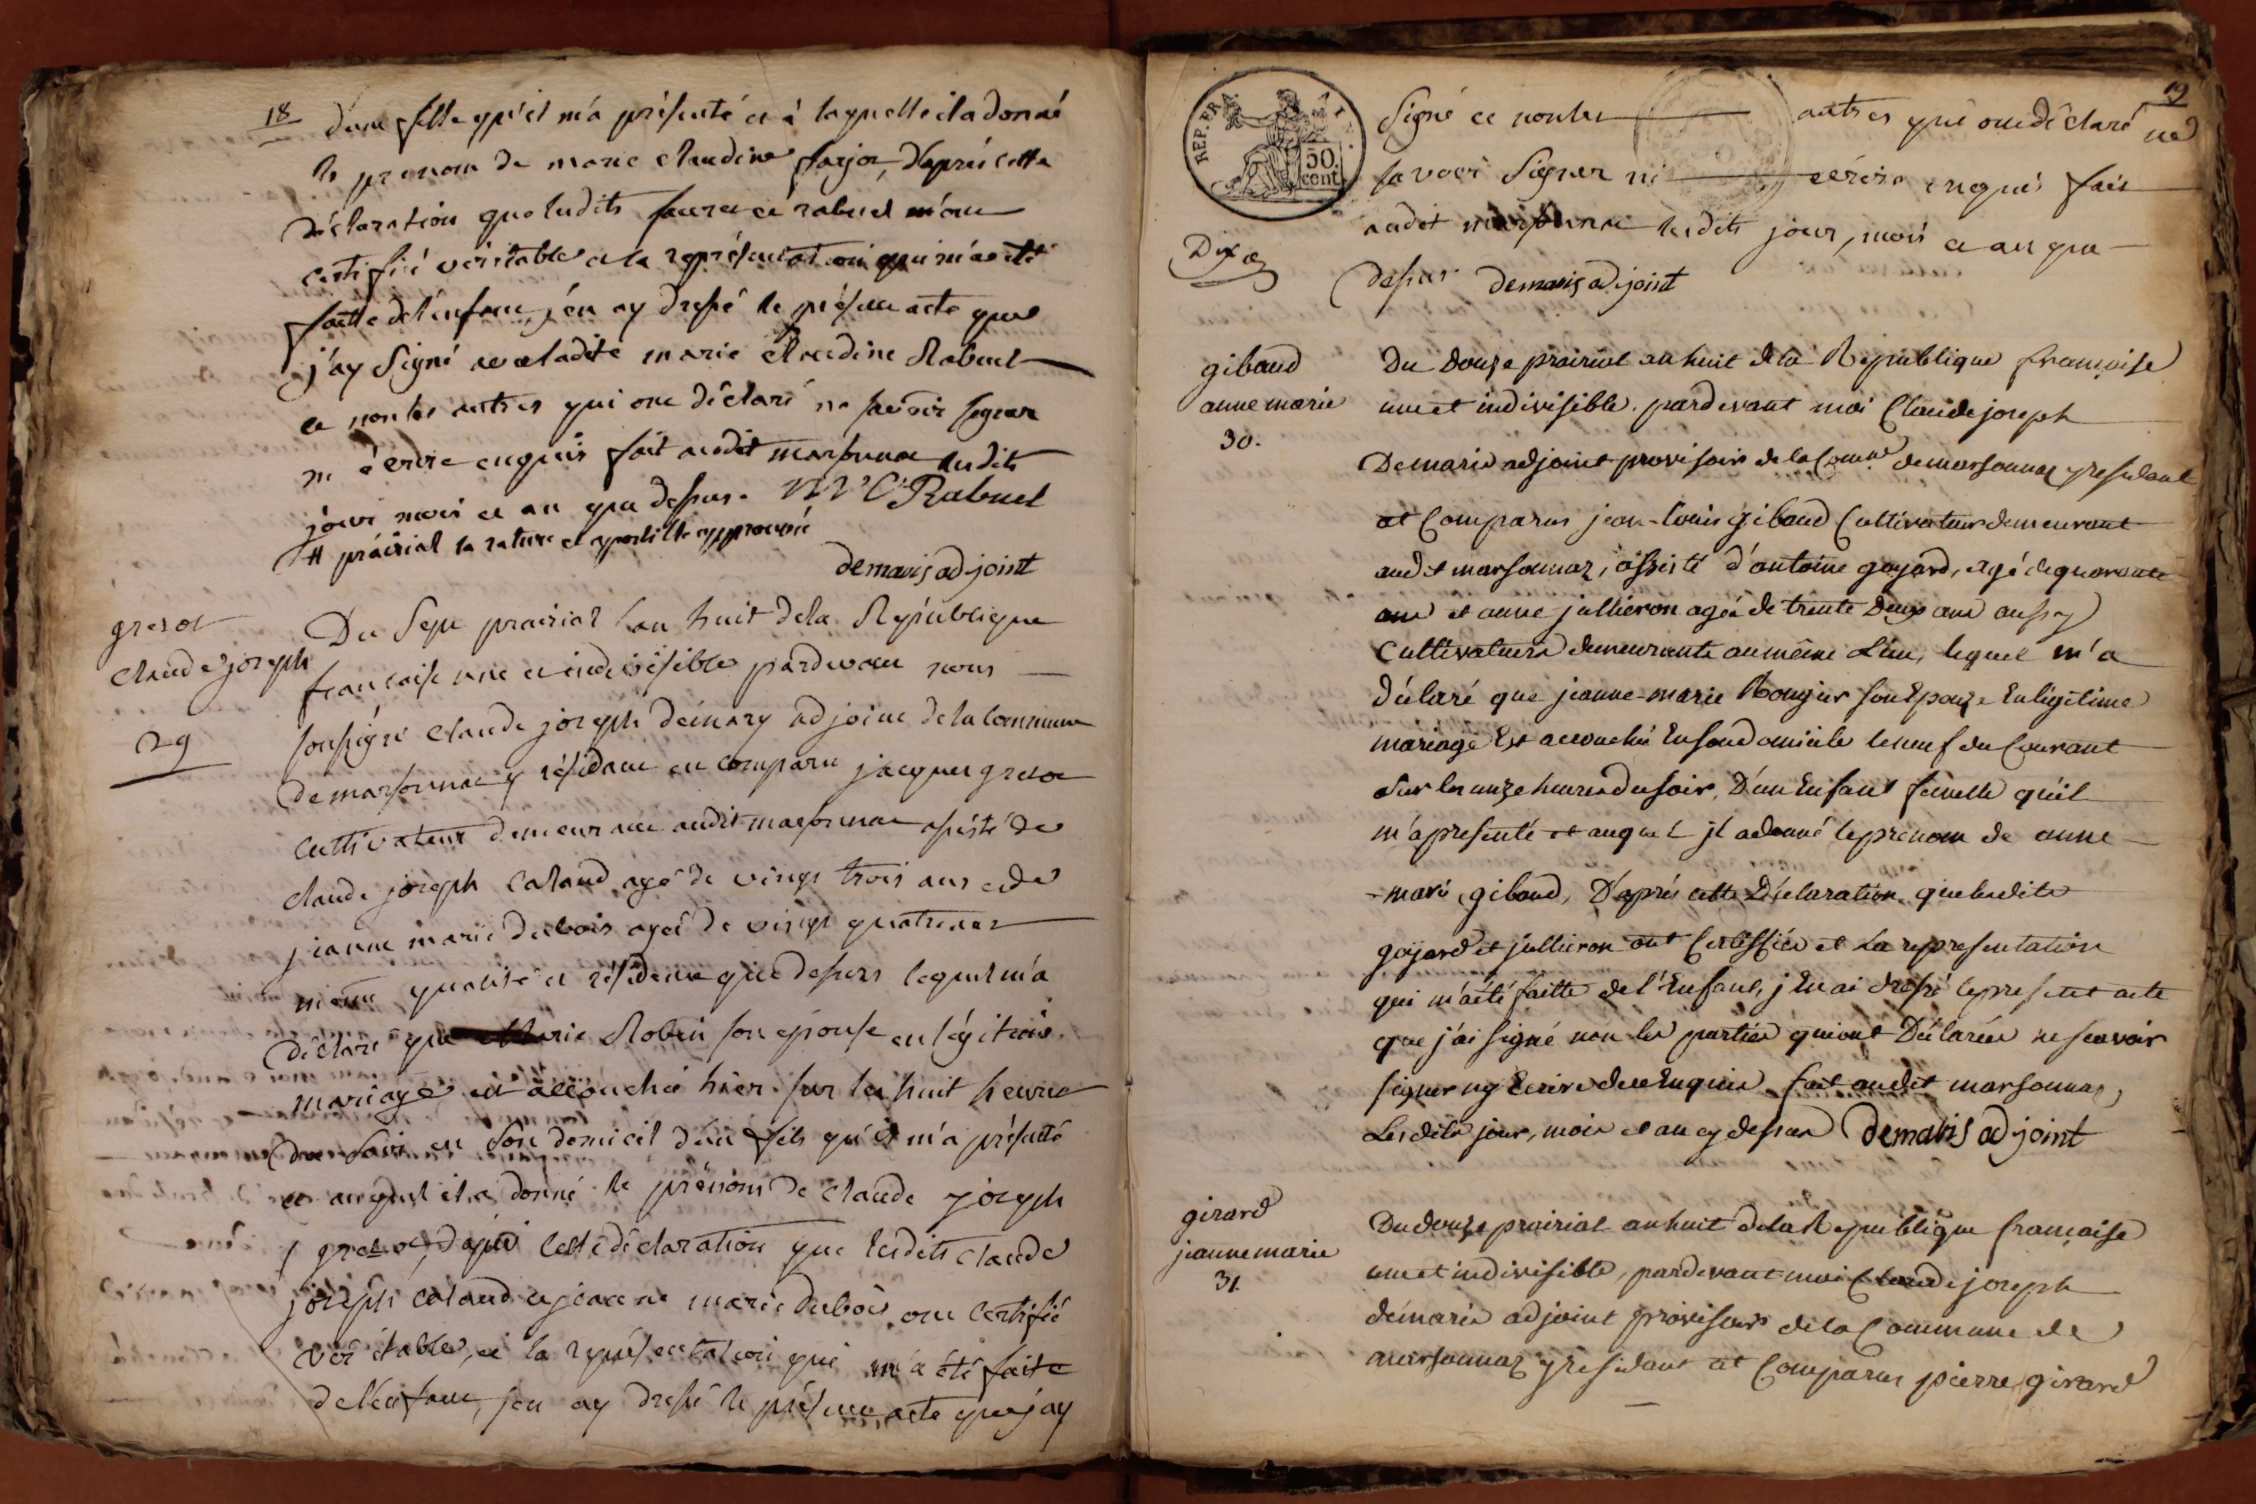 18
d'une fille qu'il m'a présenté et à laquelle il a donné
le prenom de marie claudine farjot, d'après cette
déclaration que lesdits et rabuel m'ont
certifié véritable et la représentation qui m'a été
faitte de l'enfant, j'en ay dressé le présent acte que
j'ay signé avec ladite marie claudine Rabuel
et non les autres qui ont déclaré ne savoir signer
ni écrire enquis fait audit marsonnac lesdits
jour mois et an que dessus. M C Rabuel
# prairial la rature et apostille approuvé
demaris adjoint
gresot
claude joseph
29
Du Sept prairial l'an huit de la République
française une et indivisible pardevant nous
soussigné Claude joseph démary adjoint de la commune
de marsonnac y résidant est comparu jacques gresot
cultivateur demeurant audit marsonnac assisté de
claude joseph caland agé de vingt trois ans et de
jeanne marie dubois agée de vingt quatre ans
même qualité et résidence que dessus lequel m'a
déclaré que Marie Robin son épouse en légitime
mariage est accouchée hier sur les huit heures
du soir en son domicil d'un fils qu'il m'a présenté
et auquel il a donné le prénom de claude joseph
gresot, d'après cette déclaration que lesdits claude
joseph caland et jeanne marie dubois ont certifié
véritable, et la représentation qui m'a été faite
de l'enfant, j'en ay dressé le présent acte que j'ay
19
REP. FRA.
50
cent
signé et non les autres qui ont déclaré ne
savoir signer ni écrire enquis fait
audit marsonnac lesdits jour, mois et an que
dessus demaris adjoint
gibaud
anne marie
30.
Du douze prairial an huit de la République françoise
une et indivisible. pardevant moi Claude joseph
Demarie adjoint provisoir de la Comne de marsonnaz y residant
est Comparus jean-louis gibaud Cultivateur demeurant
audit marsonnaz, assisté d'antoine goyard, agé de quarante
ans et anne jullieron agée de trente deux ans aussy
Cultivateurs demeurants au même Lieu, lequel m'a
déclaré que jeanne-marie Rongier son Epouze En légitime
mariage Est accouchée En son domicile le neuf du Courant
sur les onze heures du soir, D'un Enfant femelle qu'il
m'a presenté et auquel jl a donné le prenom de anne
-marie gibaud, D'après cette Déclaration que lesdits
goyard et jullieron ont Certiffiés et La representation
qui m'a été faitte de l'Enfant, j'En ai dressé le present acte
que j'ai signé non les parties qui ont Déclarées ne scavoir
signer ny Ecrire de ce Enquis fait audit marsonnas,
Lesdits jour, mois et an cy dessus demaris adjoint
girard
jeanne marie
31.
Du douze prairial an huit de la Republique françaisse
une et indivisible, pardevant moi Claude joseph
démarie adjoint provisoir de la Commune de
marsonnaz y residant est Comparus pierre girard